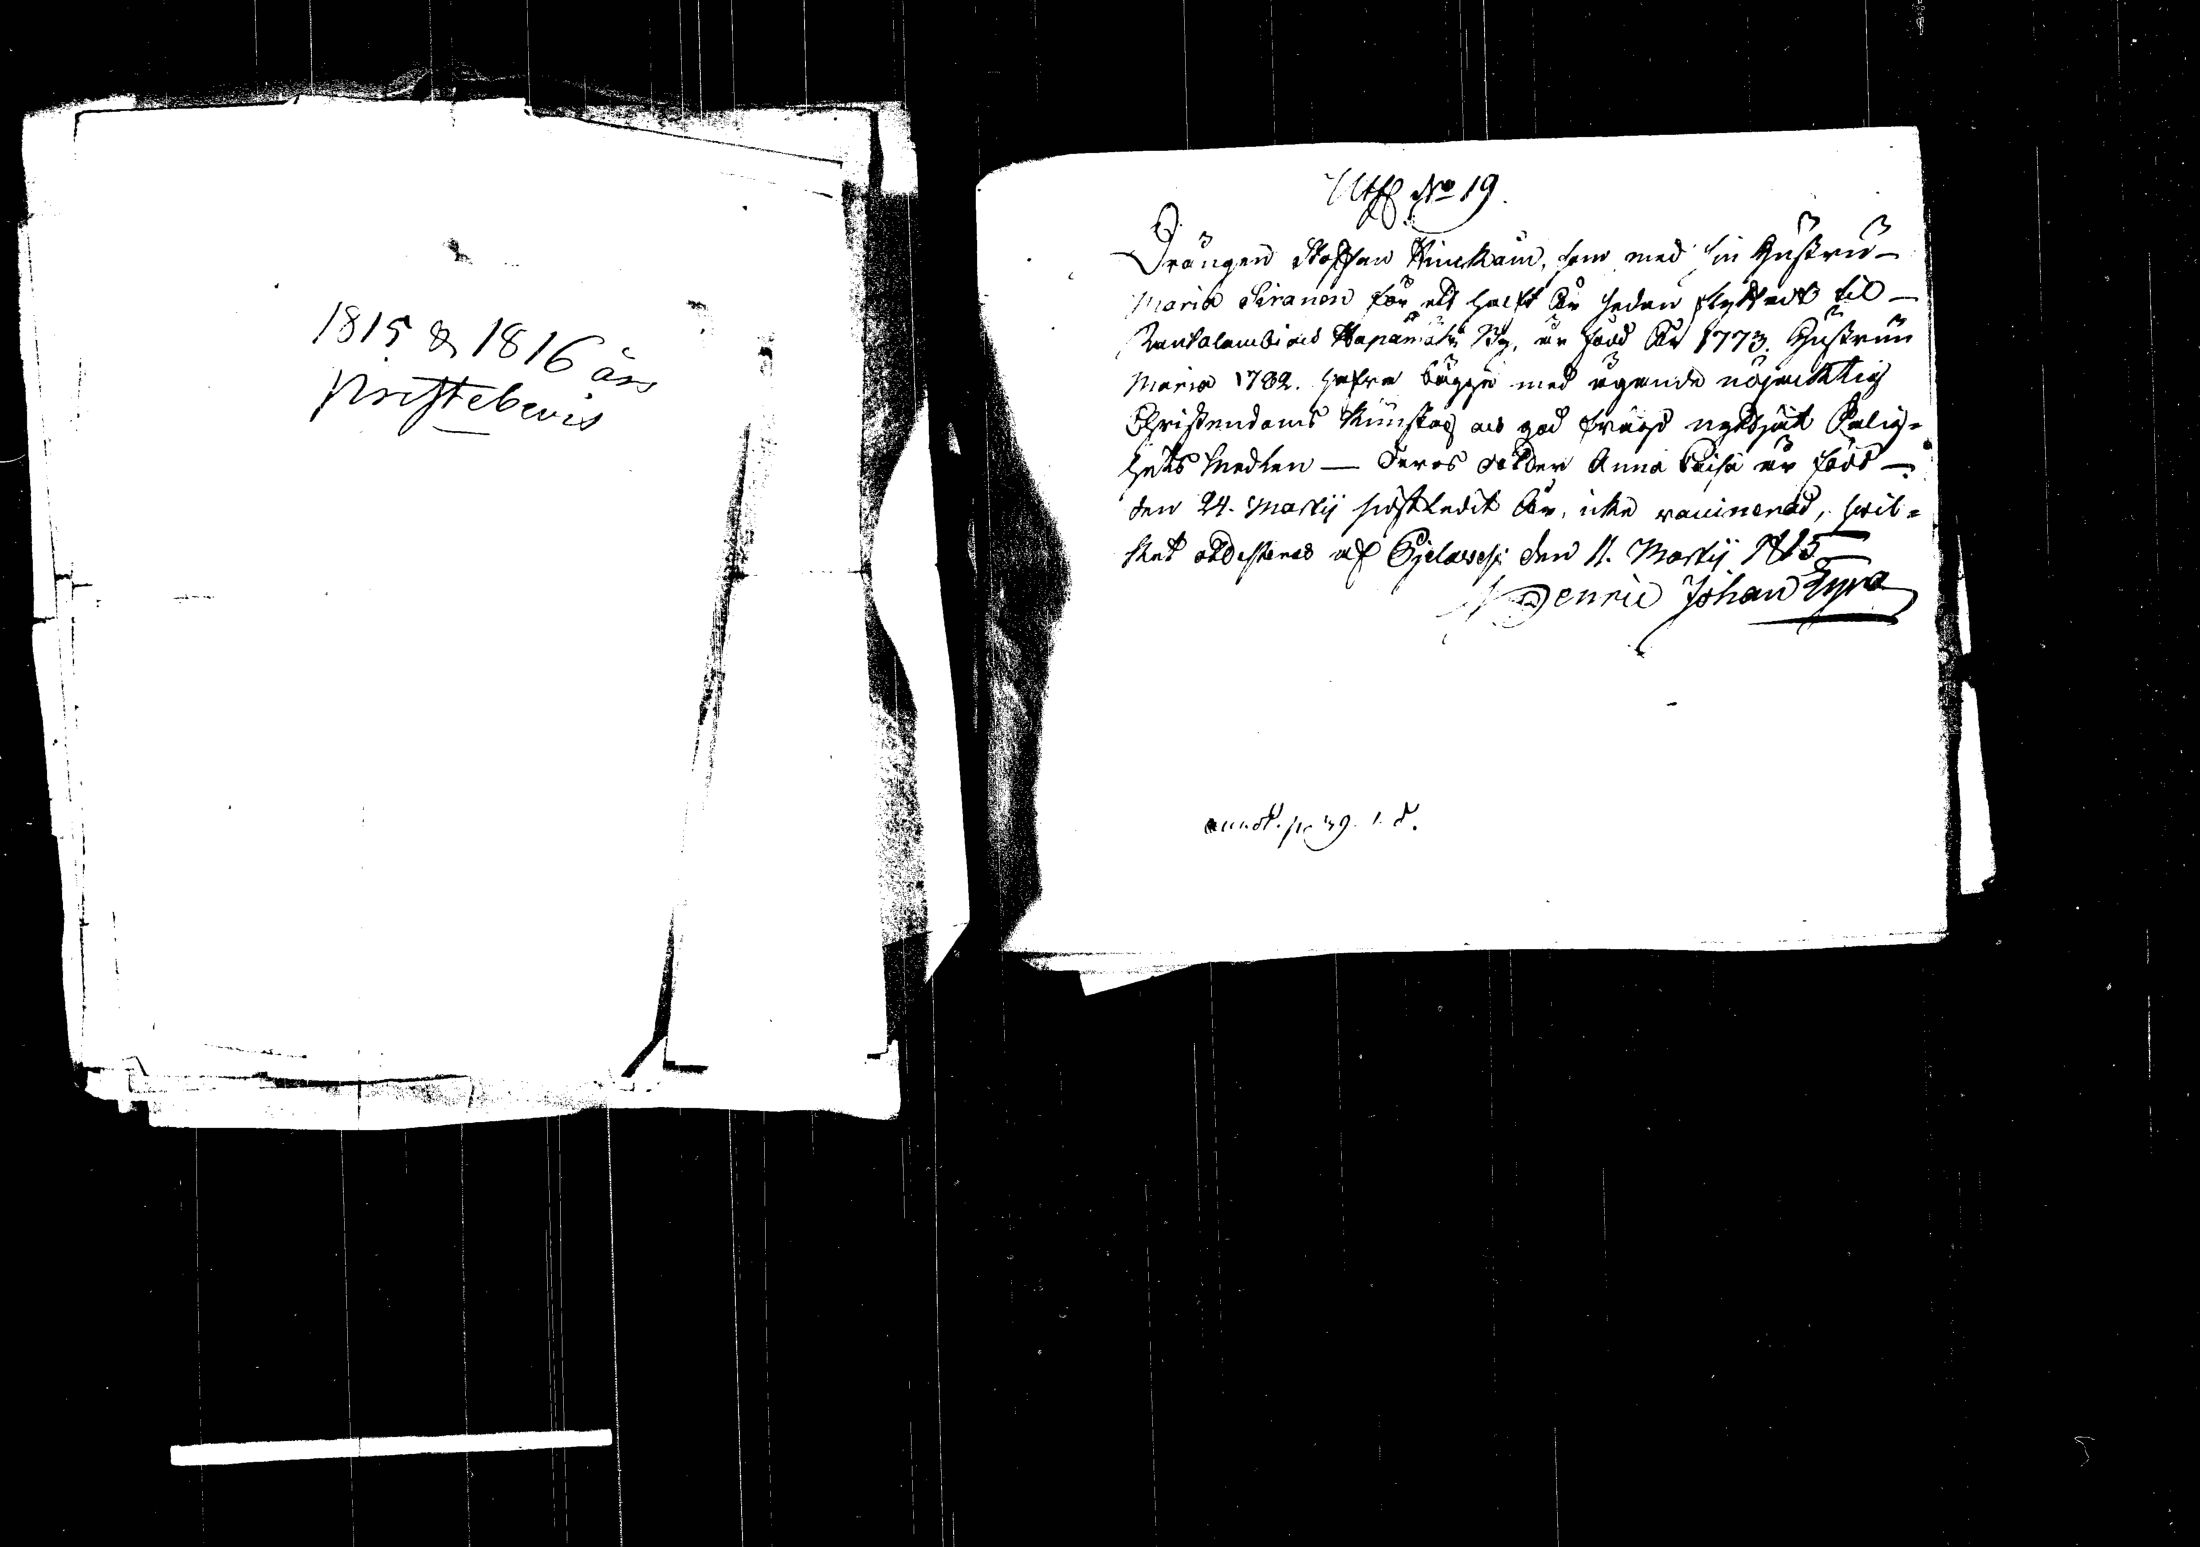 1815 & 1816 års
Prestebevis
Utfl No 19.
Drängen Staffan Hinckain, som med sin Hustru
Maria Siranen för ett halft År sedan flyttadt til
Rautalambi och Hapamäki By, är född År 1773. Hustrun
Maria 1782. hafva bägge med ägande nöjachtig
Christendoms kunskap och god frägd nyttjat Salig-
hets Medlen — deras dotter Anna Caisa är född
den 24. Martij sistledit År, icke vaccinerad, hvil-
ket attesteras af Pjelavesi den 11. Martij 1815
Henric Johan Tyra
annot. p. 39. 1. d.